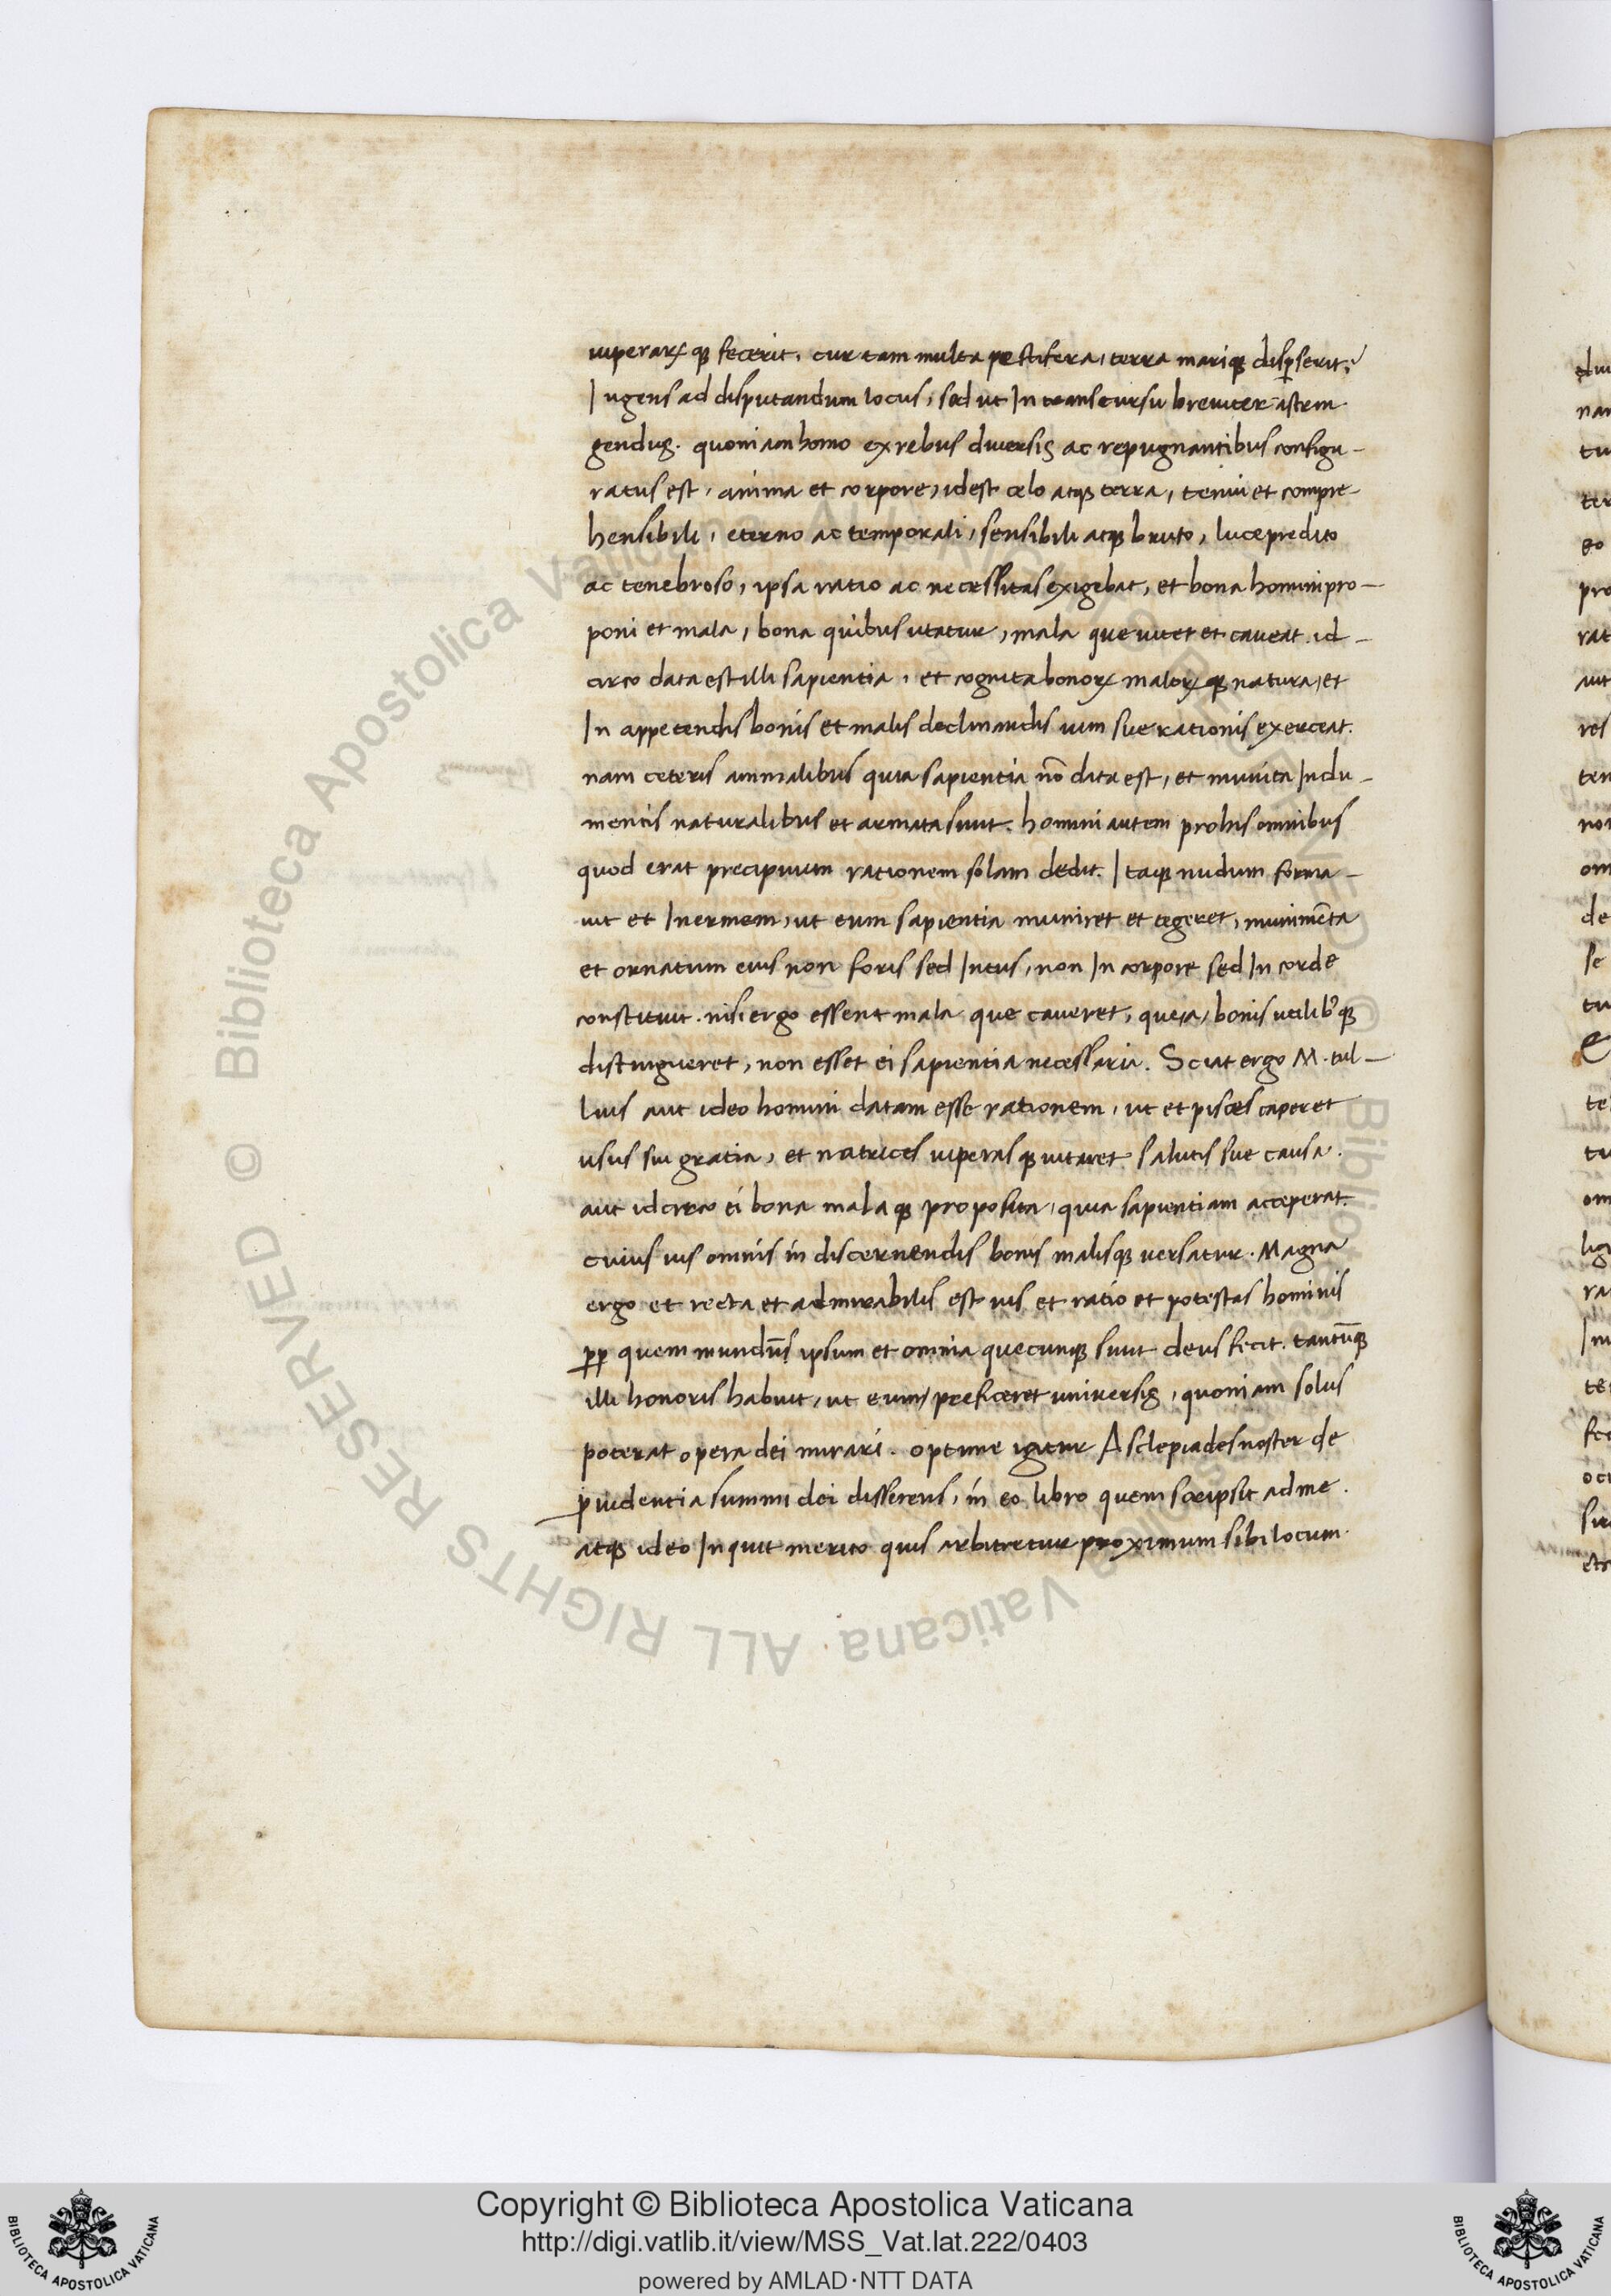 uiperarꝝ qꝫ fecerit. cur tam multa pestifera, terra mariqꝫ disꝑserit?
Ingens ad disputandum locus, sed ut In transcursu breuiter astrin
gendus. quoniam homo ex rebus diuersis ac repugnantibus configu-
ratus est, anima et corpore, idest celo atqꝫ terra, tenui et compre-
hensibili, eterno ac temporali, sensibili atqꝫ bruto, luce predito
ac tenebroso, ipsa ratio ac necessitas exigebat, et bona homini pro-
poni et mala, bona quibus utatur, mala que uitet et caueat. id-
circo data est illi sapientia, et cognita bonorꝝ malorꝝ qꝫ natura, et
In appetendis bonis et malis declinandis uim sue rationis exerceat.
nam ceteris animalibus quia sapientia nō data est, et munita Indu-
mentis naturalibus et armata sunt. homini autem pro his omnibus
quod erat precipuum rationem solam dedit. Itaqꝫ nudum forma-
uit et Inermem, ut eum sapientia muniret et tegeret, munimēta
et ornatum eius non foris sed Intus, non In corpore sed In corde
constituit. nisi ergo essent mala que caueret, que a bonis utilibꝰqꝫ
distingueret, non esset ei sapientia necessaria. Sciat ergo M. tul-
lius aut ideo homini datam esse rationem, ut et pisces caperet
usus sui gratia, et natrices uiperas qꝫ uitaret salutis sue causa.
aut idcirco ei bona mala qꝫ proposita, quia sapientiam acceperat.
cuius uis omnis in discernendis bonis malisqꝫ uersatur. Magna
ergo et recta et admirabilis est uis et ratio et potestas hominis
ꝓp quem mundūs ipsum et omnia quecunqꝫ sunt deus fecit. tantūqꝫ
illi honoris habuit, ut eum preficeret uniuersis, quoniam solus
poterat opera dei mirari. optime igitur Asclepiades noster de
ꝓuidentia summi dei disserens, in eo libro quem scripsit ad me.
atqꝫ ideo Inquit merito quis arbitretur proximum sibi locum.
© Biblioteca Apostolica Vaticana ALL RIGHTS RESERVED
Copyright © Biblioteca Apostolica Vaticana
http://digi.vatlib.it/view/MSS_Vat.lat.222/0403
powered by AMLAD·NTT DATA
BIBLIOTECA APOSTOLICA VATICANA
BIBLIOTECA APOSTOLICA VATICANA